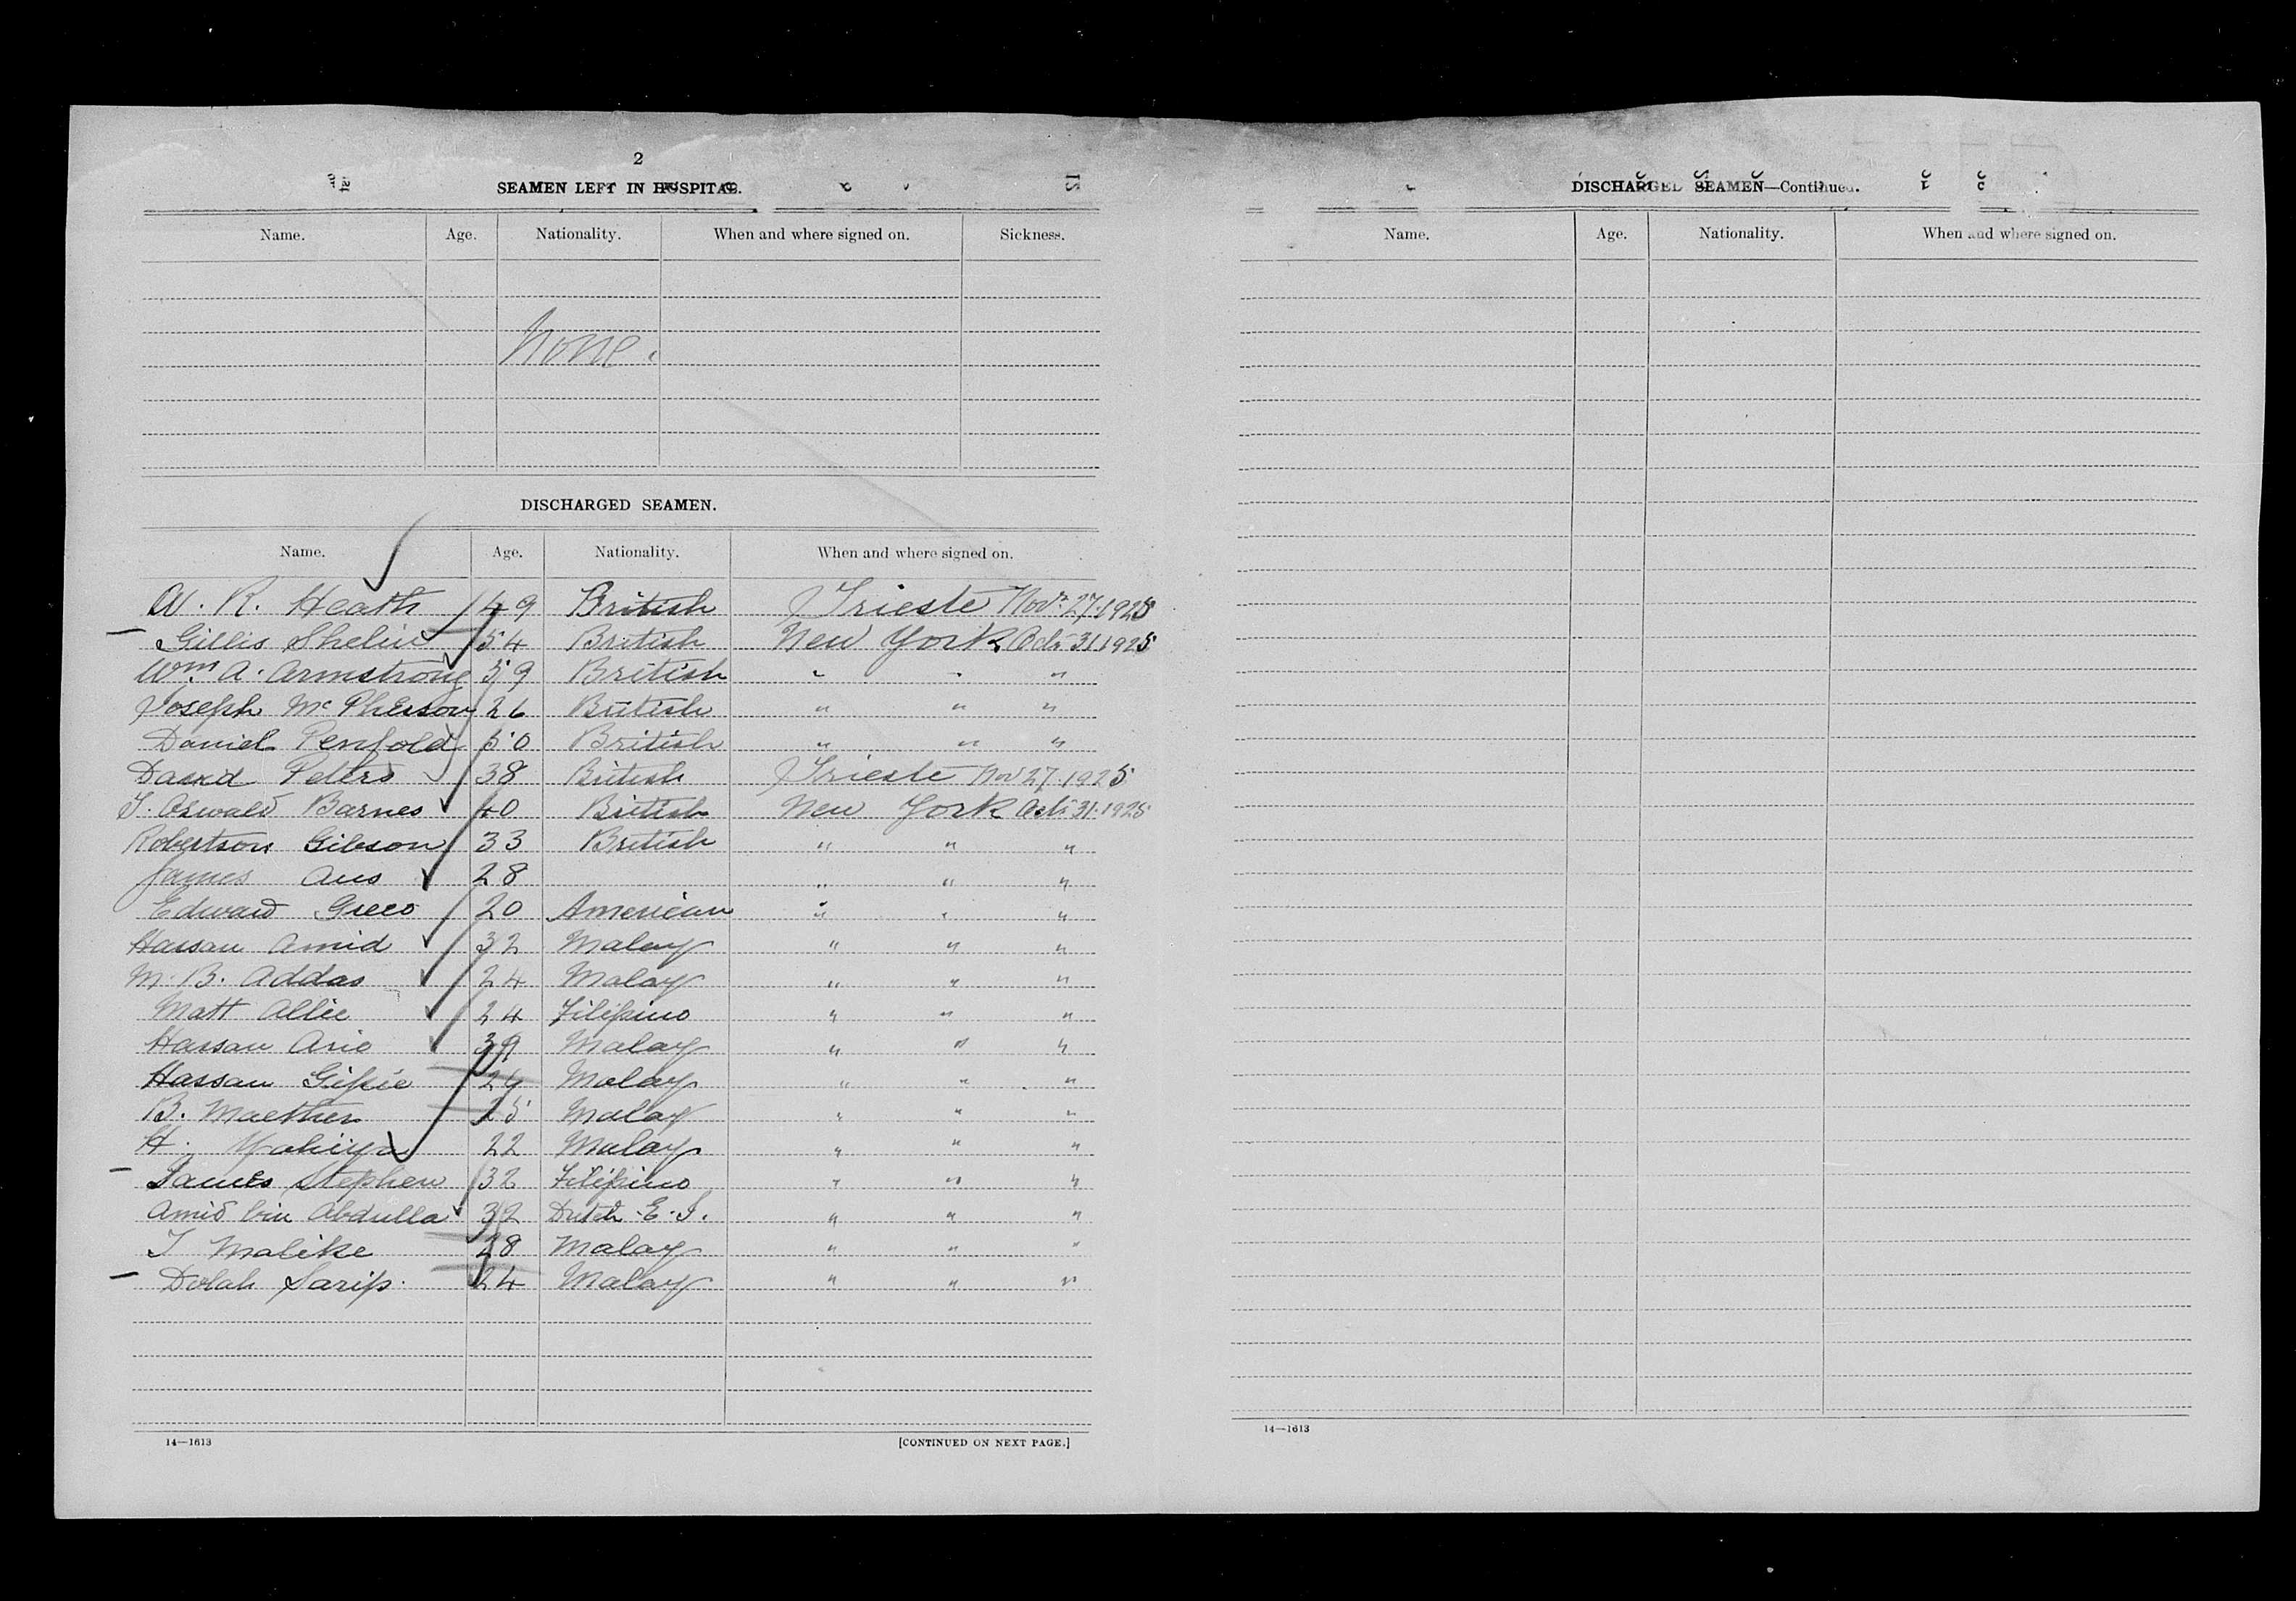 2
SEAMEN LEFT IN HOSPITAL.
Name. Age. Nationality. When and where signed on. Sickness.
None.
DISCHARGED SEAMEN.
Name. Age. Nationality. When and where signed on.
W. R. Heath 49 British Trieste Nov. 27. 1925
Gillis 54 British New York Oct. 31. 1925
Wm. A. Armstrong 59 British " " "
Joseph McPherson 26 British " " "
Daniel Penfold 50 British " " "
David Peters 38 British Trieste Nov 27. 1925
J. Oswald Barnes 40 British New York Oct. 31. 1925
Robertson Gibson 33 British " " "
James Aus 28 " " "
Edward Greco 20 American " " "
Hassan Amid 32 Malay " " "
M. B. Addas 24 Malay " " "
Matt Allie 24 Filipino " " "
Hassan Ario 39 Malay " " "
Hassan Gipie 24 Malay " " "
B. 25 Malay " " "
H. Yahiya 22 Malay " " "
James Stephen 32 Filipino " " "
Amid bin Abdulla 32 Dutch E. I. " " "
Malike 28 Malay " " "
Dolah Sarip. 24 Malay " " "
14—1613 [CONTINUED ON NEXT PAGE.]
DISCHARGED SEAMEN—Continued.
Name. Age. Nationality. When and where signed on.
14—1613